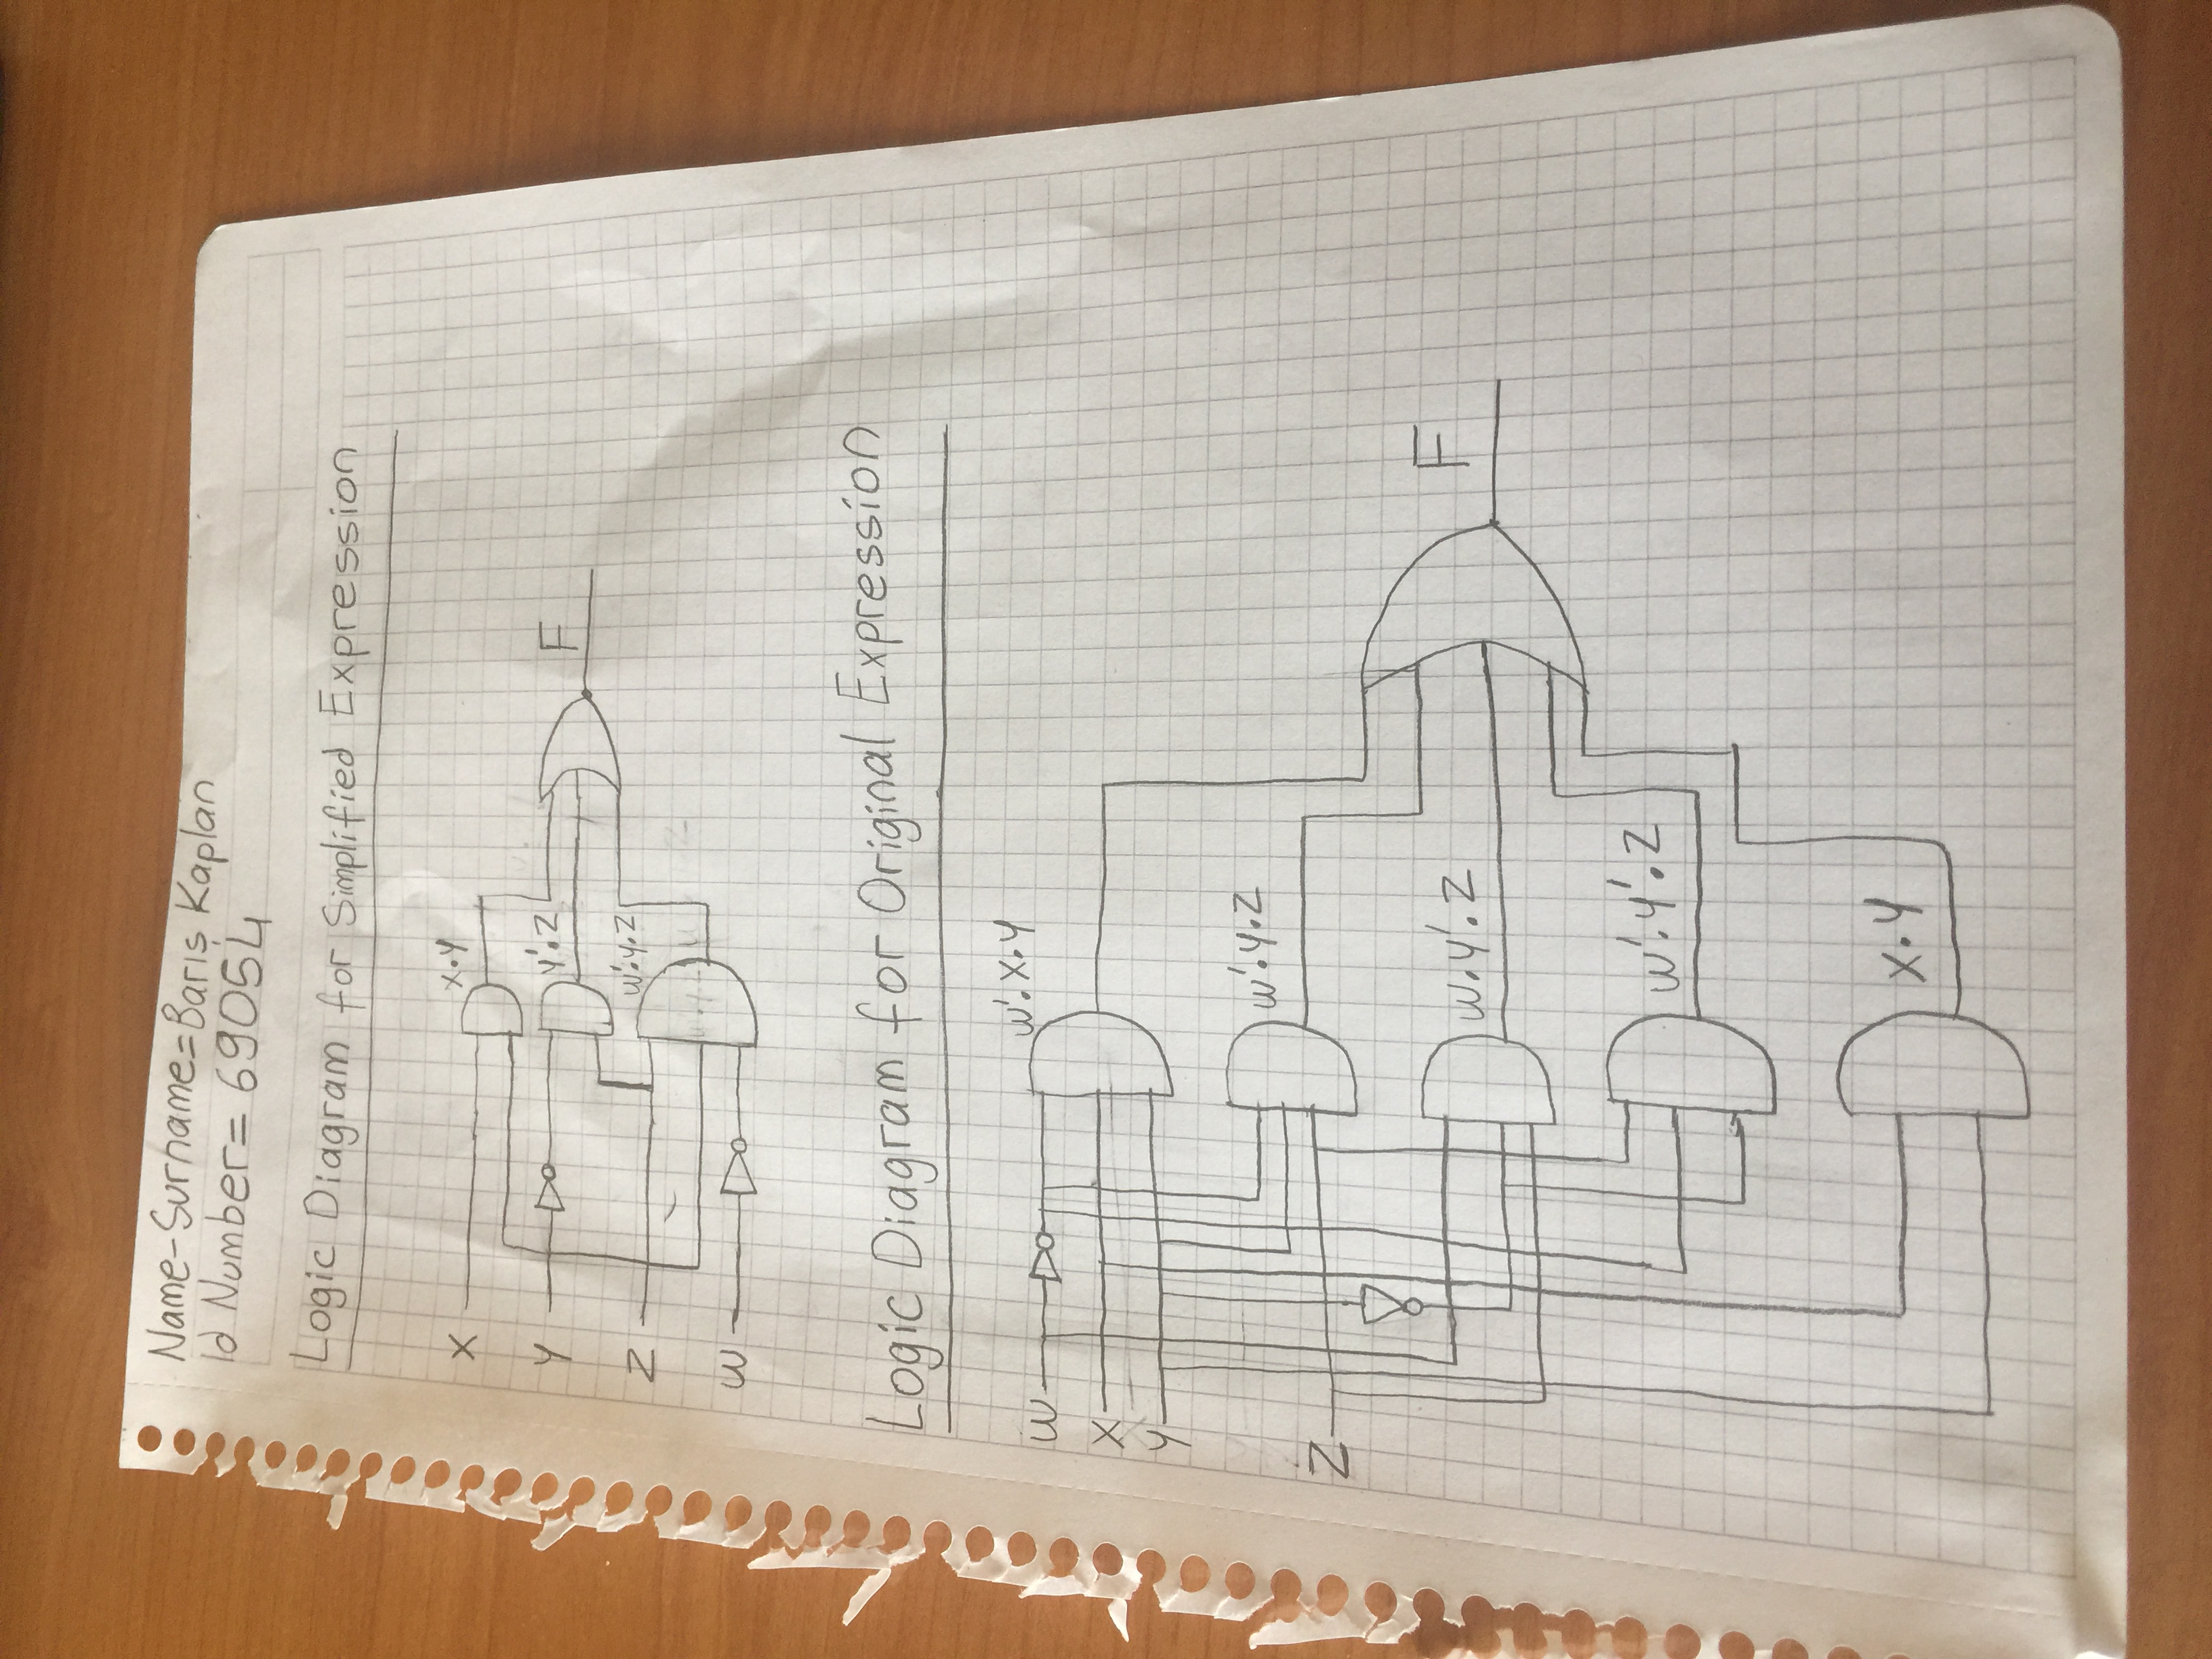 Name-Surname=Barış Kaplan
Id Number= 69054
Logic Diagram for Simplified Expression
X
x.y
Y
y'.z
F
Z
w'.y.z
W
Logic Diagram for Original Expression
W
w'.x.y
X
Y
w'.y.z
Z
w.y'.z
F
w'.y'.z
x.y